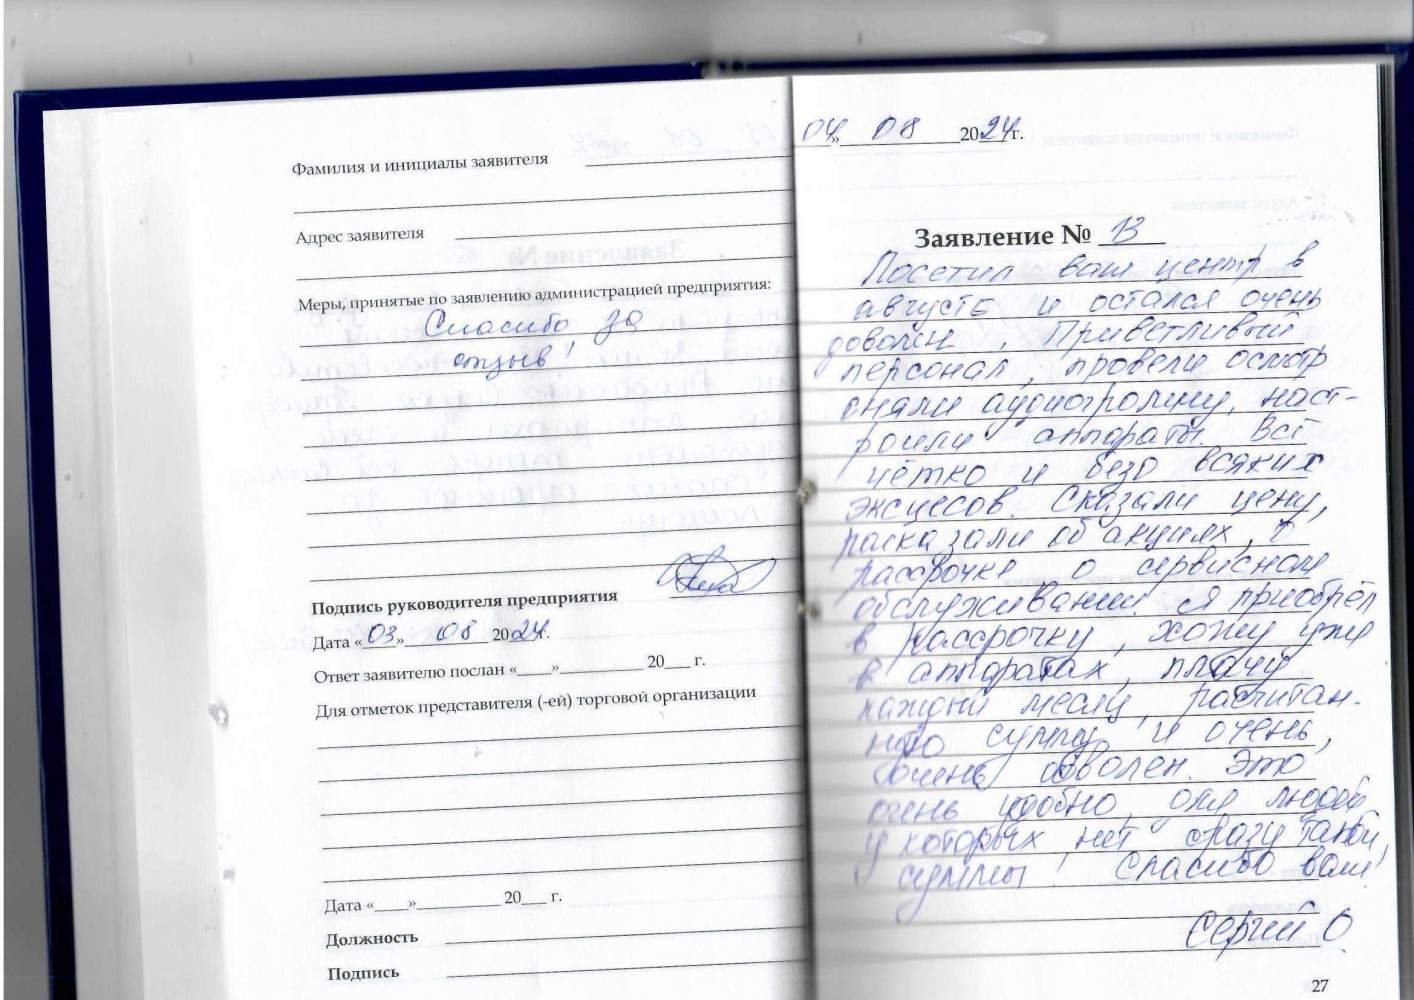 Фамилия и инициалы заявителя
Адрес заявителя
Меры, принятые по заявлению администрацией предприятия:
Спасибо за
отзыв!
Подпись руководителя предприятия
Дата «03» 08 2024г.
Ответ заявителю послан «____»__________ 20___ г.
Для отметок представителя (-ей) торговой организации
Дата «____»__________ 20___ г.
Должность
Подпись
04» 08 2024г.
Заявление № 13
Посетил ваш центр в
августе и остался очень
доволен. Приветливый
персонал, провели осмотр,
сняли аудиограмму, наст-
роили аппараты. Всё
чётко и безо всяких
эксцесов. Сказали цену,
расказали об акциях, о
рассрочке, о сервисном
обслуживании. Я приобрёл
в рассрочку, хожу уже
в аппаратах, плачу
каждый месяц, расчитан-
ную сумму и очень,
очень доволен. Это
очень удобно, для людей
у которых нет сразу такой
суммы! Спасибо вам!
Сергей О.
27